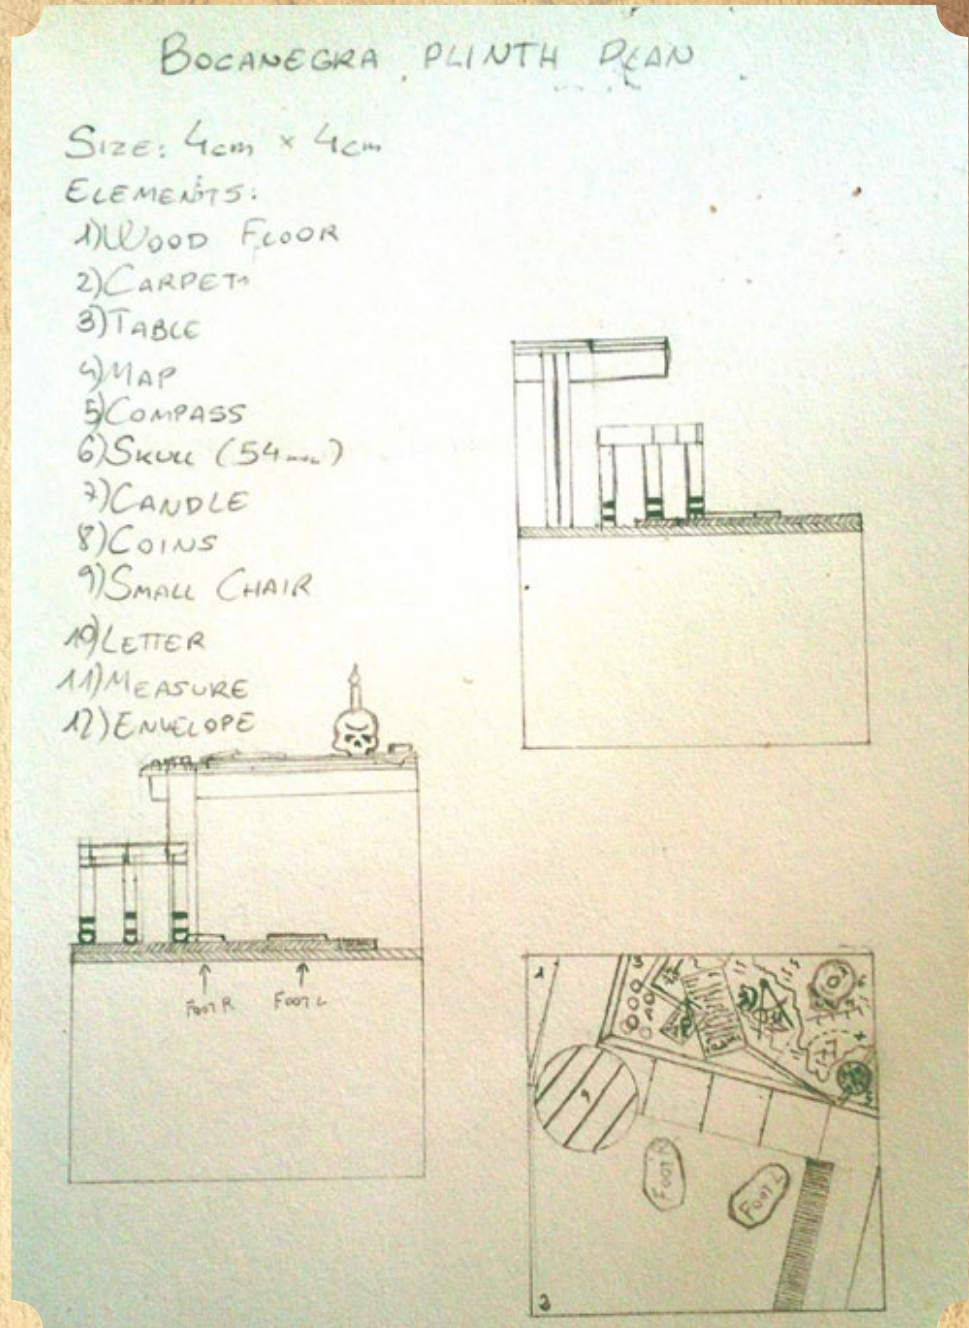 BOCANEGRA PLINTH PLAN
SIZE: 4cm × 4cm
ELEMENTS:
1) WOOD FLOOR
2) CARPET
3) TABLE
4) MAP
5) COMPASS
6) SKULL (54mm)
7) CANDLE
8) COINS
9) SMALL CHAIR
10) LETTER
11) MEASURE
12) ENVELOPE
FOOT R FOOT L
1
3
9
FOOT R
FOOT L
2